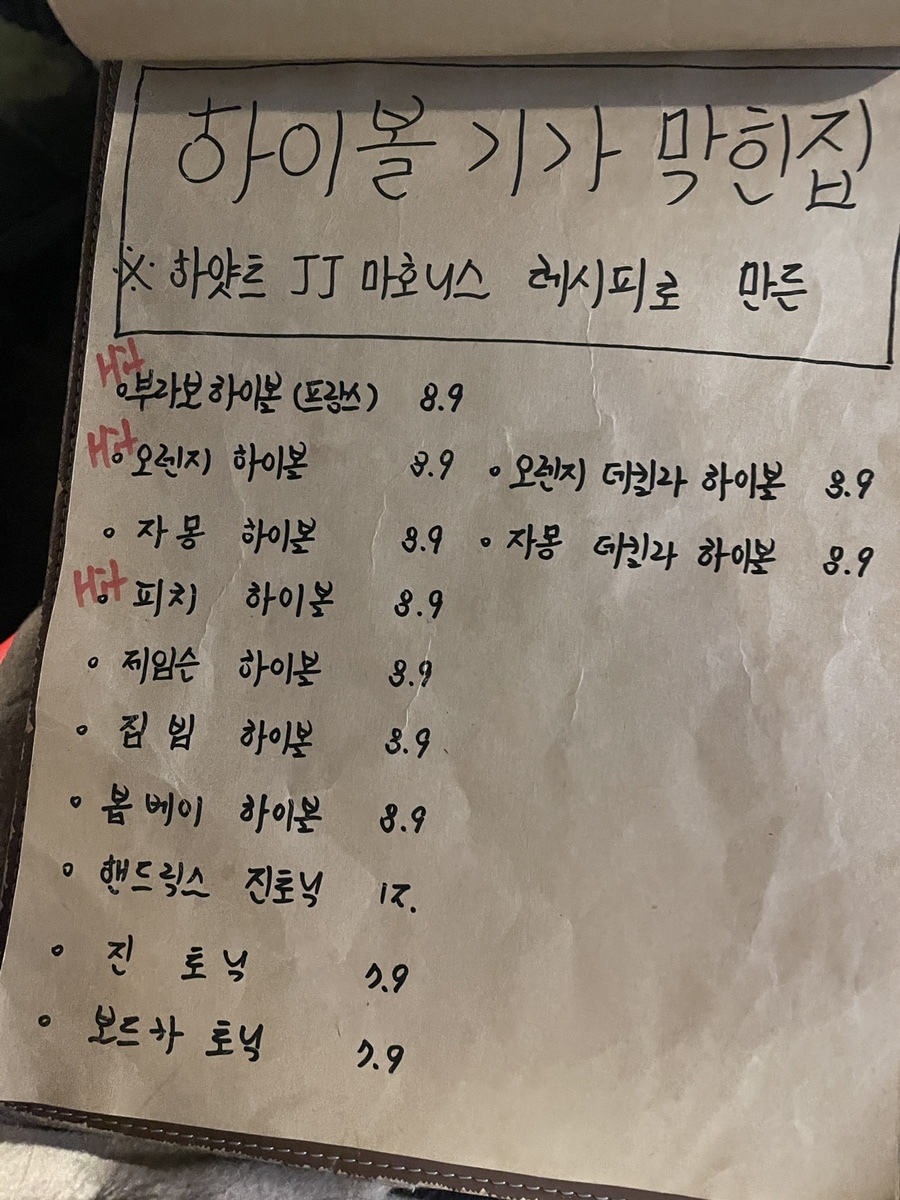 하이볼 기가 막힌집
※ 하얏트 JJ 마호니스 레시피로 만든
Hit 부라보하이볼 (프랑스) 8.9
Hit 오렌지 하이볼 8.9 • 오렌지 데킬라 하이볼 8.9
• 자몽 하이볼 8.9 • 자몽 데킬라 하이볼 8.9
Hit 피치 하이볼 8.9
• 제임슨 하이볼 8.9
• 짐빔 하이볼 8.9
• 봄베이 하이볼 8.9
• 핸드릭스 진토닉 12.
• 진 토닉 7.9
• 보드카 토닉 7.9